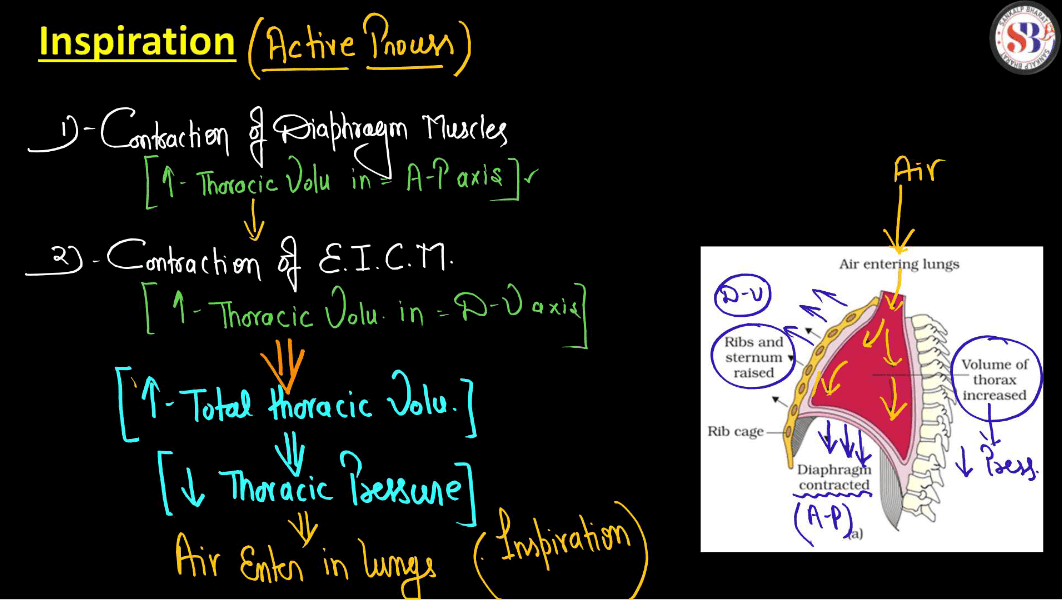 Inspiration (Active Process)
SANKALP BHARAT
SB
SANKALP BHARAT
1)- Contraction of Diaphragm Muscles
[↑- Thoracic Volu in = A-P axis] ✓
↓
2)- Contraction of E.I.C.M.
[↑- Thoracic Volu. in = D-V axis]
[↑- Total thoracic Volu.]
[↓ Thoracic Pressure]
Air Enter in lungs (Inspiration)
Air
Air entering lungs
D-V
Ribs and
sternum
raised
Volume of
thorax
increased
↓ Press.
Rib cage
Diaphragm
contracted
(A-P)
(a)